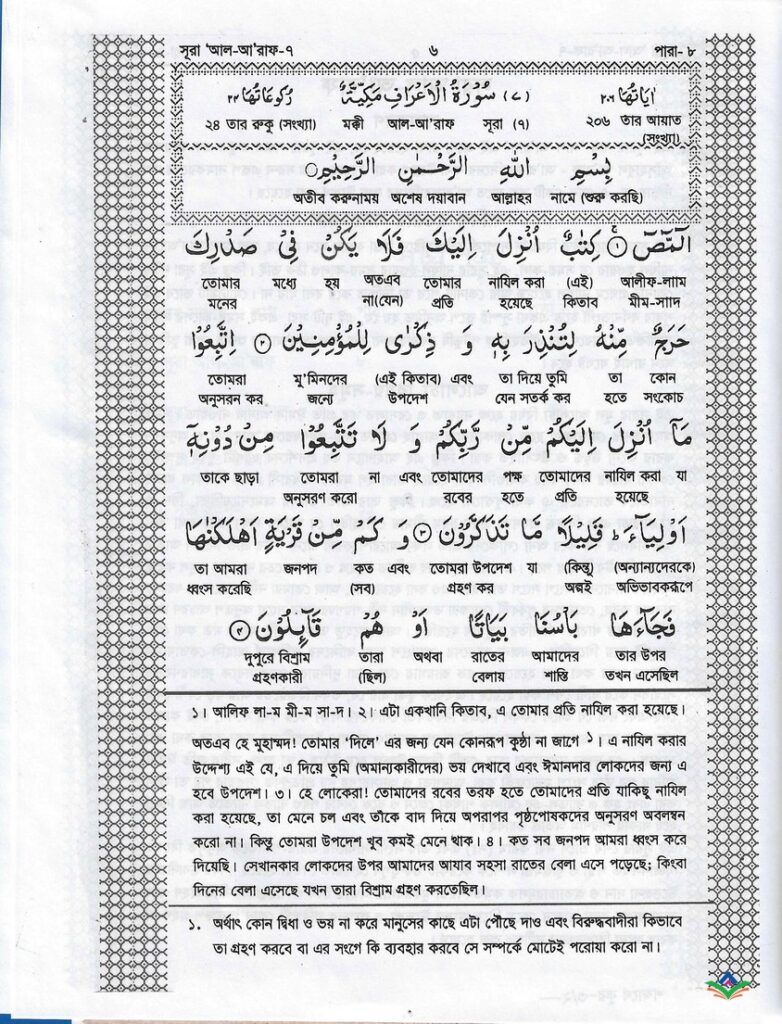 সূরা 'আল-আ'রাফ-৭ ৬ পারা- ৮
اٰیَاتُهَا ٢٠٦ (٧) سُوْرَةُ الْاَعْرَافِ مَكِّيَّةٌ رُكُوْعَاتُهَا ٢٤
২৪ তার রুকু (সংখ্যা) মক্কী আল-আ'রাফ সূরা (৭) ২০৬ তার আয়াত
(সংখ্যা)
بِسْمِ اللّٰهِ الرَّحْمٰنِ الرَّحِيْمِ
অতীব করুনাময় অশেষ দয়াবান আল্লাহর নামে (শুরু করছি)
الٓمّٓصٓ ۚ﴿١﴾ كِتٰبٌ اُنْزِلَ اِلَيْكَ فَلَا يَكُنْ فِيْ صَدْرِكَ
তোমার মধ্যে হয় অতএব তোমার নাযিল করা (এই) আলীফ-লাাম
মনের না(যেন) প্রতি হয়েছে কিতাব মীম-সাাদ
حَرَجٌ مِّنْهُ لِتُنْذِرَ بِهٖ وَ ذِكْرٰى لِلْمُؤْمِنِيْنَ ﴿٢﴾ اِتَّبِعُوْا
তোমরা মু'মিনদের (এই কিতাব) এবং তা দিয়ে তুমি তা কোন
অনুসরন কর জন্যে উপদেশ যেন সতর্ক কর হতে সংকোচ
مَآ اُنْزِلَ اِلَيْكُمْ مِّنْ رَّبِّكُمْ وَ لَا تَتَّبِعُوْا مِنْ دُوْنِهٖٓ
তাকে ছাড়া তোমরা না এবং তোমাদের পক্ষ তোমাদের নাযিল করা যা
অনুসরণ করো রবের হতে প্রতি হয়েছে
اَوْلِيَآءَ ؕ قَلِيْلًا مَّا تَذَكَّرُوْنَ ﴿٣﴾ وَ كَمْ مِّنْ قَرْيَةٍ اَهْلَكْنٰهَا
তা আমরা জনপদ কত এবং তোমরা উপদেশ যা (কিন্তু) (অন্যান্যদেরকে)
ধ্বংস করেছি (সব) গ্রহণ কর অল্পই অভিভাবকরূপে
فَجَآءَهَا بَاْسُنَا بَيَاتًا اَوْ هُمْ قَآىِٕلُوْنَ ﴿٤﴾
দুপুরে বিশ্রাম তারা অথবা রাতের আমাদের তার উপর
গ্রহণকারী (ছিল) বেলায় শাস্তি তখন এসেছিল
১। আলিফ লা-ম মী-ম সা-দ। ২। এটা একখানি কিতাব, এ তোমার প্রতি নাযিল করা হয়েছে।
অতএব হে মুহাম্মদ! তোমার 'দিলে' এর জন্য যেন কোনরূপ কুণ্ঠা না জাগে ১। এ নাযিল করার
উদ্দেশ্য এই যে, এ দিয়ে তুমি (অমান্যকারীদের) ভয় দেখাবে এবং ঈমানদার লোকদের জন্য এ
হবে উপদেশ। ৩। হে লোকেরা! তোমাদের রবের তরফ হতে তোমাদের প্রতি যাকিছু নাযিল
করা হয়েছে, তা মেনে চল এবং তাঁকে বাদ দিয়ে অপরাপর পৃষ্ঠপোষকদের অনুসরণ অবলম্বন
করো না। কিন্তু তোমরা উপদেশ খুব কমই মেনে থাক। ৪। কত সব জনপদ আমরা ধ্বংস করে
দিয়েছি। সেখানকার লোকদের উপর আমাদের আযাব সহসা রাতের বেলা এসে পড়েছে; কিংবা
দিনের বেলা এসেছে যখন তারা বিশ্রাম গ্রহণ করতেছিল।
১. অর্থাৎ কোন দ্বিধা ও ভয় না করে মানুসের কাছে এটা পৌছে দাও এবং বিরুদ্ধবাদীরা কিভাবে
তা গ্রহণ করবে বা এর সংগে কি ব্যবহার করবে সে সম্পর্কে মোটেই পরোয়া করো না।